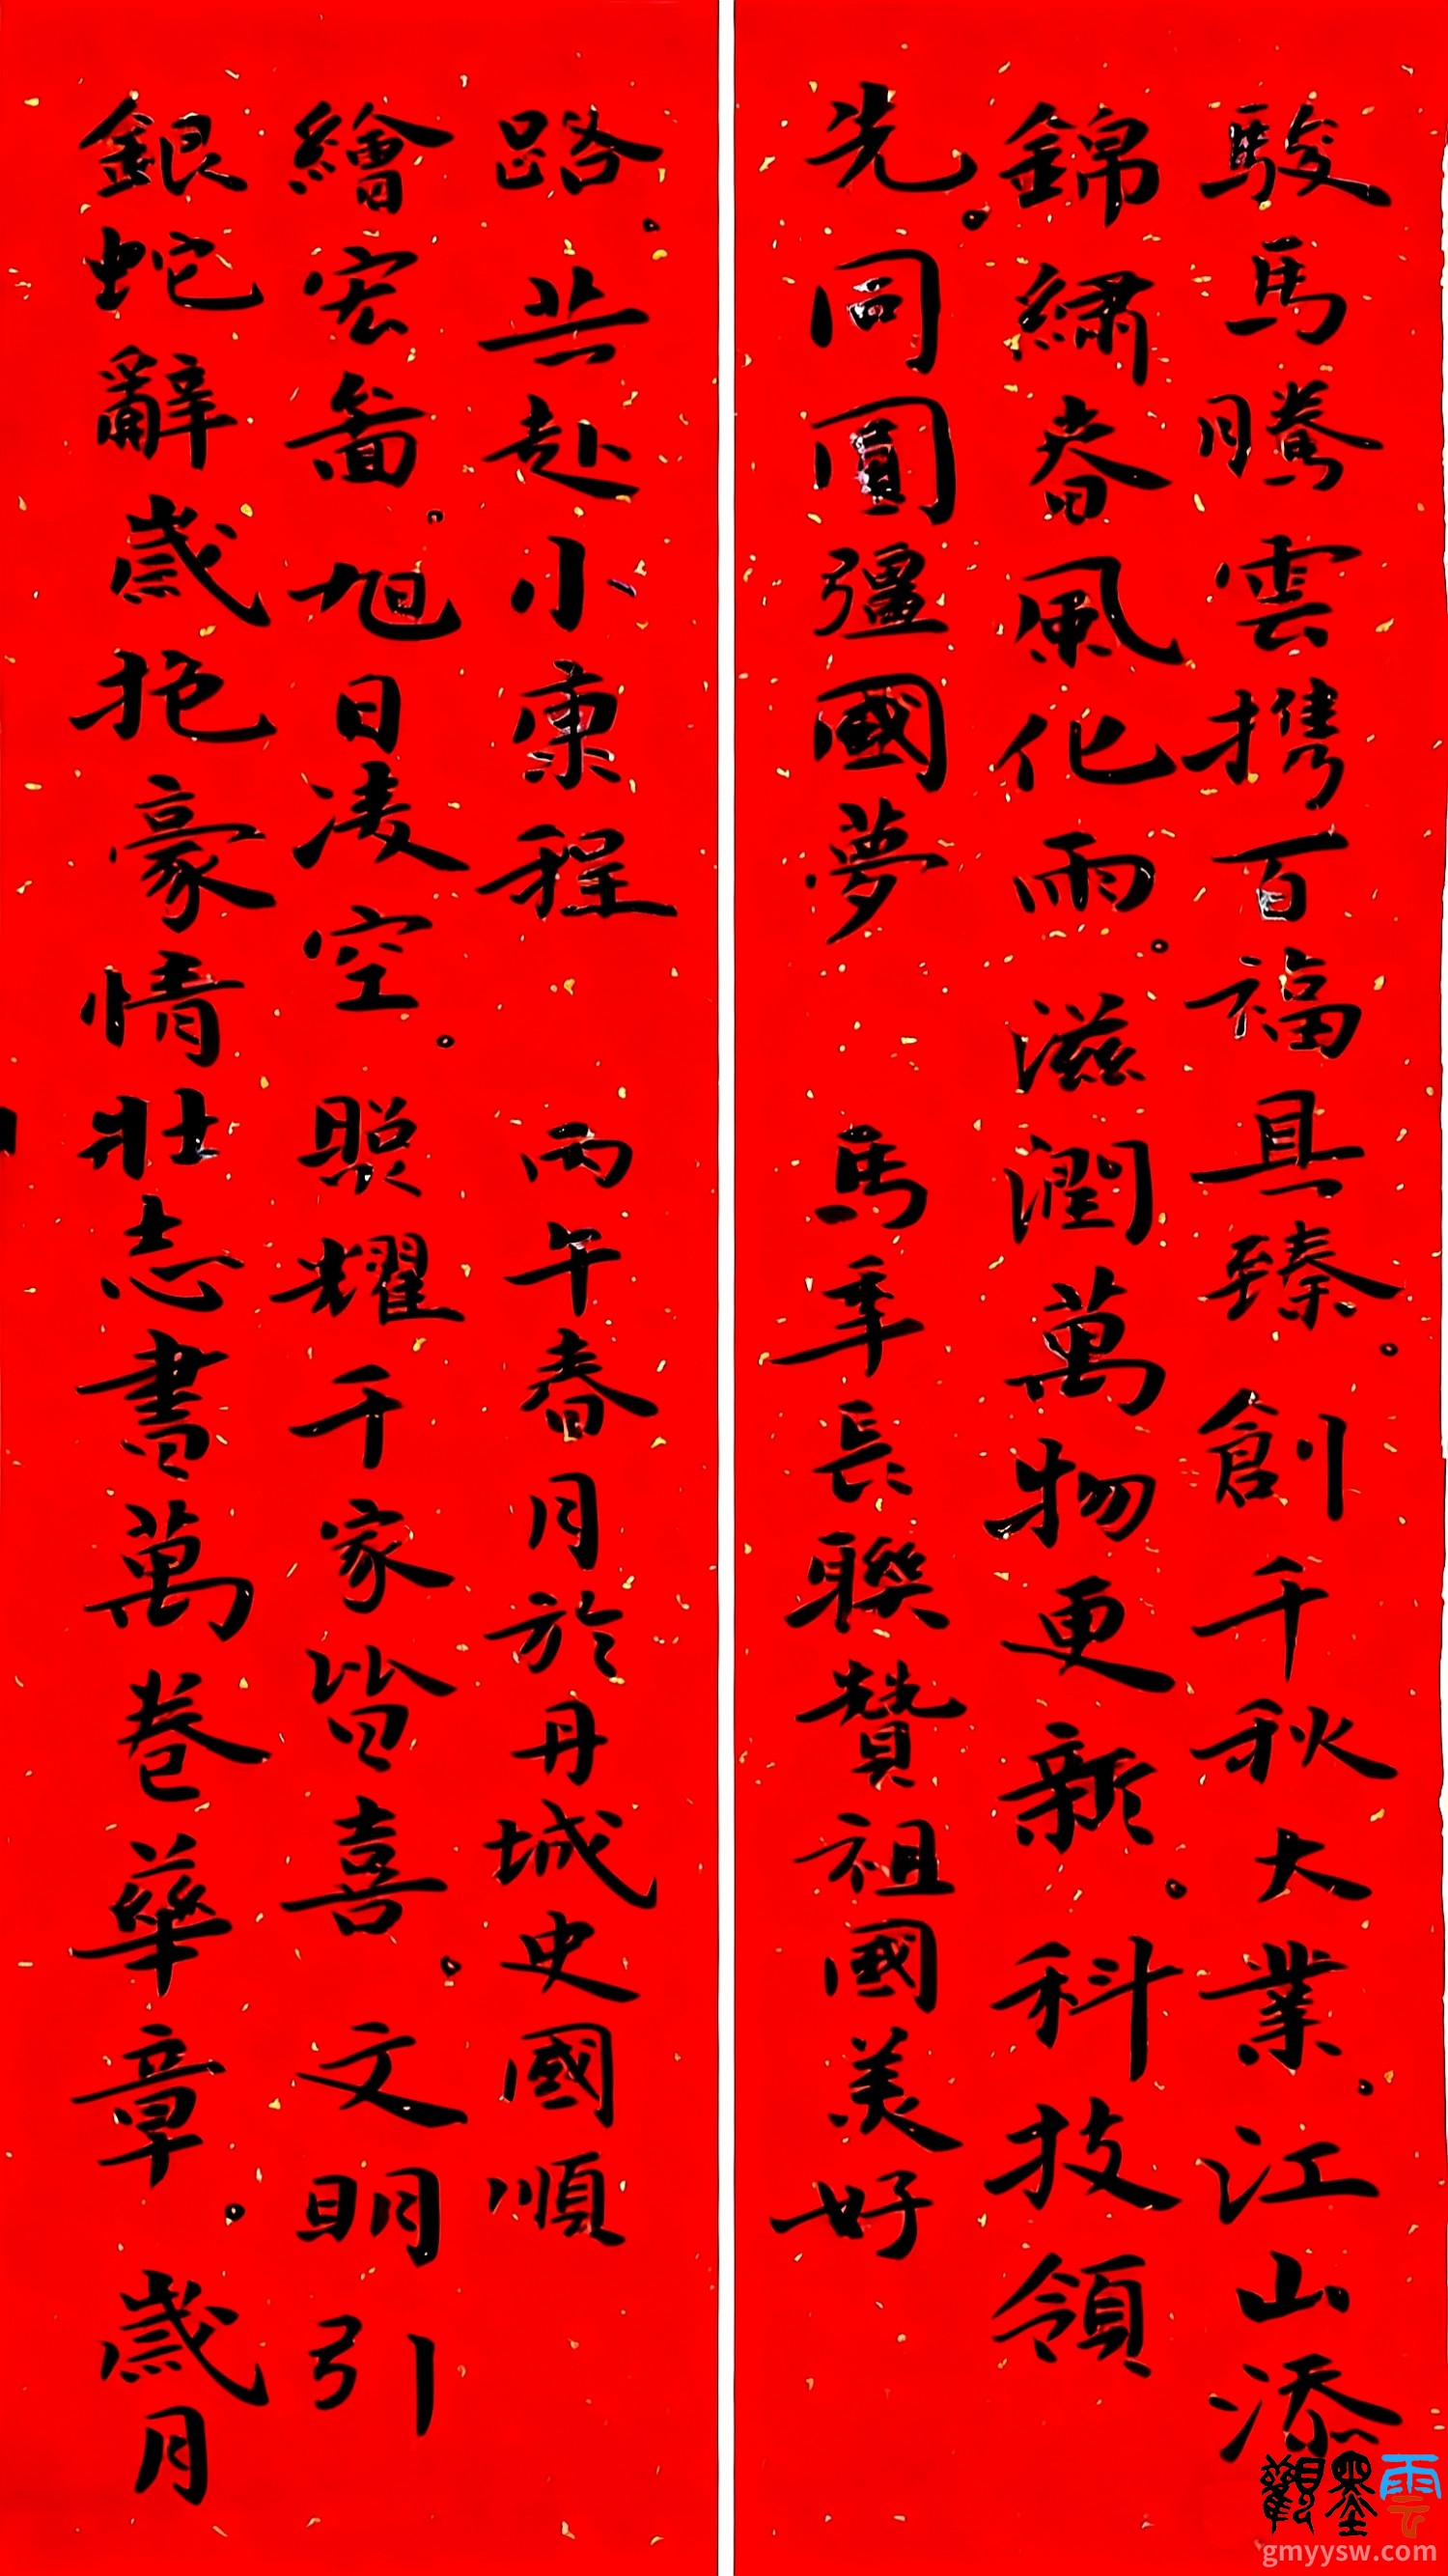 駿馬騰雲携百福具臻。創千秋大業。江山添
錦繡春風化雨。滋潤萬物更新。科技領
先。同圓彊國夢 馬年長聯贊祖國美好
銀蛇辭歲抱豪情壯志書萬卷華章。歲月
繪宏圖。旭日凌空。照耀千家皆喜。文明引
路。共赴小康程 丙午春月於丹城史國順
觀墨雲
gmyysw.com